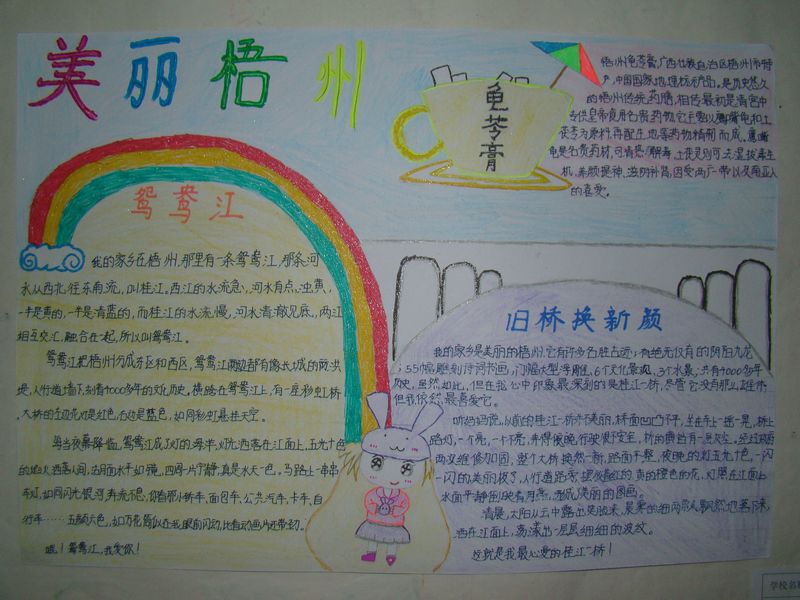 美丽梧州
龟苓膏
梧州龟苓膏,广西壮族自治区梧州市特
产,中国国家地理标志产品。是历史悠久
的梧州传统药膳,相传最初是清宫中
专供皇帝食用名贵药物。它主要以鹰嘴龟和土
茯苓为原料,再配生地等药物精制而成。鹰嘴
龟是名贵药材,可清热解毒,土茯苓则可去湿
机,养颜提神,滋阴补肾,因受两广一带以及
的喜爱。
鸳鸯江
我的家乡在梧州,那里有一条鸳鸯江,那条河
水从西北往东南流,叫桂江,西江的水流急,河水有点浊黄,
一半是黄的,一半是清蓝的,而桂江的水流慢,河水清澈见底。两江
相互交汇,融合在一起,所以叫鸳鸯江。
鸳鸯江把梧州分成东区和西区,鸳鸯江两边都有像长城的防洪
堤,人行道墙下,刻着4000多年的文化历史。横跨在鸳鸯江上,有一座彩虹桥
大桥的左边花灯是红色,右边是蓝色,如同彩虹悬挂天空。
每当夜幕降临,鸳鸯江成了灯的海洋,灯光洒落在江面上,五光十色
的焰火洒落人间,江月面水平如镜,四周一片宁静,真是水天一色,马路上一串串
车灯,如同闪光银河奔流不息,你看那小轿车,面包车,公共汽车,卡车,自
行车……五颜六色,如万花筒似在我眼前闪动,比看动画片还带劲。
哦!鸳鸯江,我爱你!
旧桥换新颜
我的家乡是美丽的梧州,它有许多名胜古迹:有绝无仅有的阴阳九龙
;55幅雕刻诗词书画,门幅大型浮雕,6个文化景观,3个水景,共有4000多年
历史。虽然如此,但在我心中印象最深刻的是桂江一桥,尽管它没有那么雄伟,
但我依然最喜爱它。
听妈妈说,以前的桂江一桥并不美丽,桥面凹凸不平,坐在车上摇一晃,桥上
路灯,一个亮,一个不亮,弄得夜晚行驶很不安全,桥的两旁有一点灰尘。经过
两次维修加固,整个大桥焕然一新,路面平整,夜晚的灯五光十色,一闪
一闪的美丽极了,人行道路旁摆放着红的、黄的橙色的花,灯照在江面上,
水面平静倒映着月亮,形成美丽的图画。
清晨,太阳从云中露出笑脸来,晨来的细雨从飘然地落下来,
洒在江面上,荡漾出一层层细细的波纹。
这就是我最心爱的桂江一桥!
学校名称